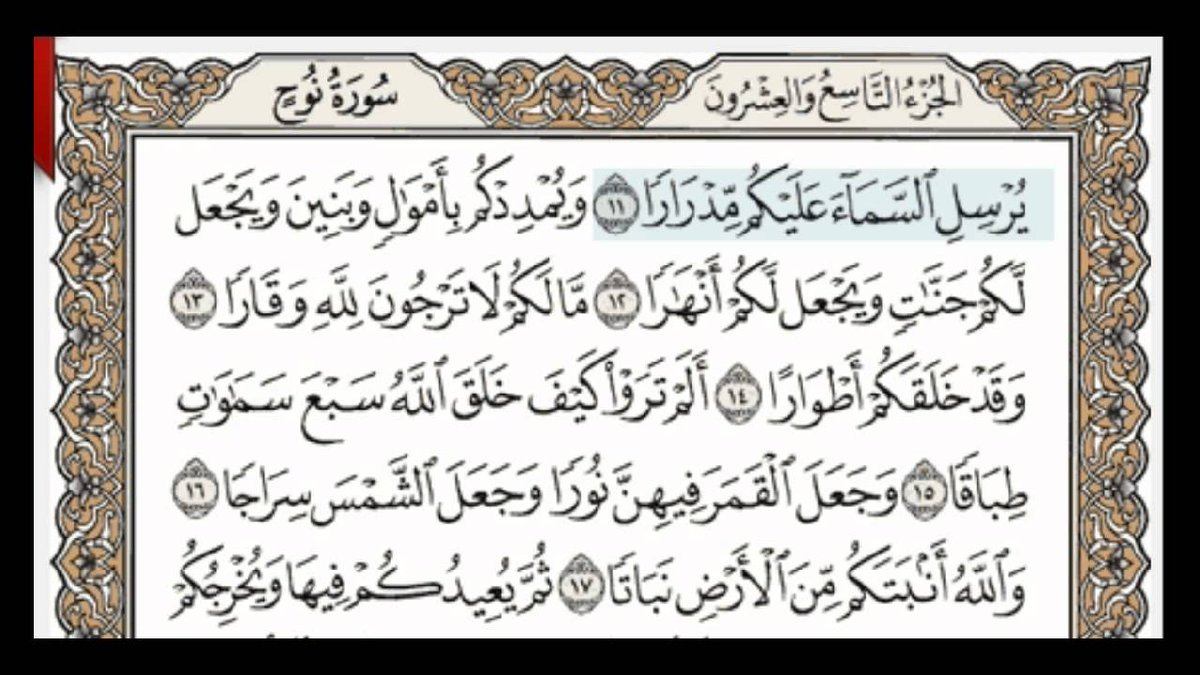 الجُزْءُ التَّاسِعُ وَالعِشْرُونَ سُورَةُ نُوحٍ
يُرْسِلِ ٱلسَّمَآءَ عَلَيْكُم مِّدْرَارًا ١١ وَيُمْدِدْكُم بِأَمْوَٰلٍ وَبَنِينَ وَيَجْعَل
لَّكُمْ جَنَّٰتٍ وَيَجْعَل لَّكُمْ أَنْهَٰرًا ١٢ مَّا لَكُمْ لَا تَرْجُونَ لِلَّهِ وَقَارًا ١٣
وَقَدْ خَلَقَكُمْ أَطْوَارًا ١٤ أَلَمْ تَرَوْا۟ كَيْفَ خَلَقَ ٱللَّهُ سَبْعَ سَمَٰوَٰتٍ
طِبَاقًا ١٥ وَجَعَلَ ٱلْقَمَرَ فِيهِنَّ نُورًا وَجَعَلَ ٱلشَّمْسَ سِرَاجًا ١٦
وَٱللَّهُ أَنۢبَتَكُم مِّنَ ٱلْأَرْضِ نَبَاتًا ١٧ ثُمَّ يُعِيدُكُمْ فِيهَا وَيُخْرِجُكُمْ